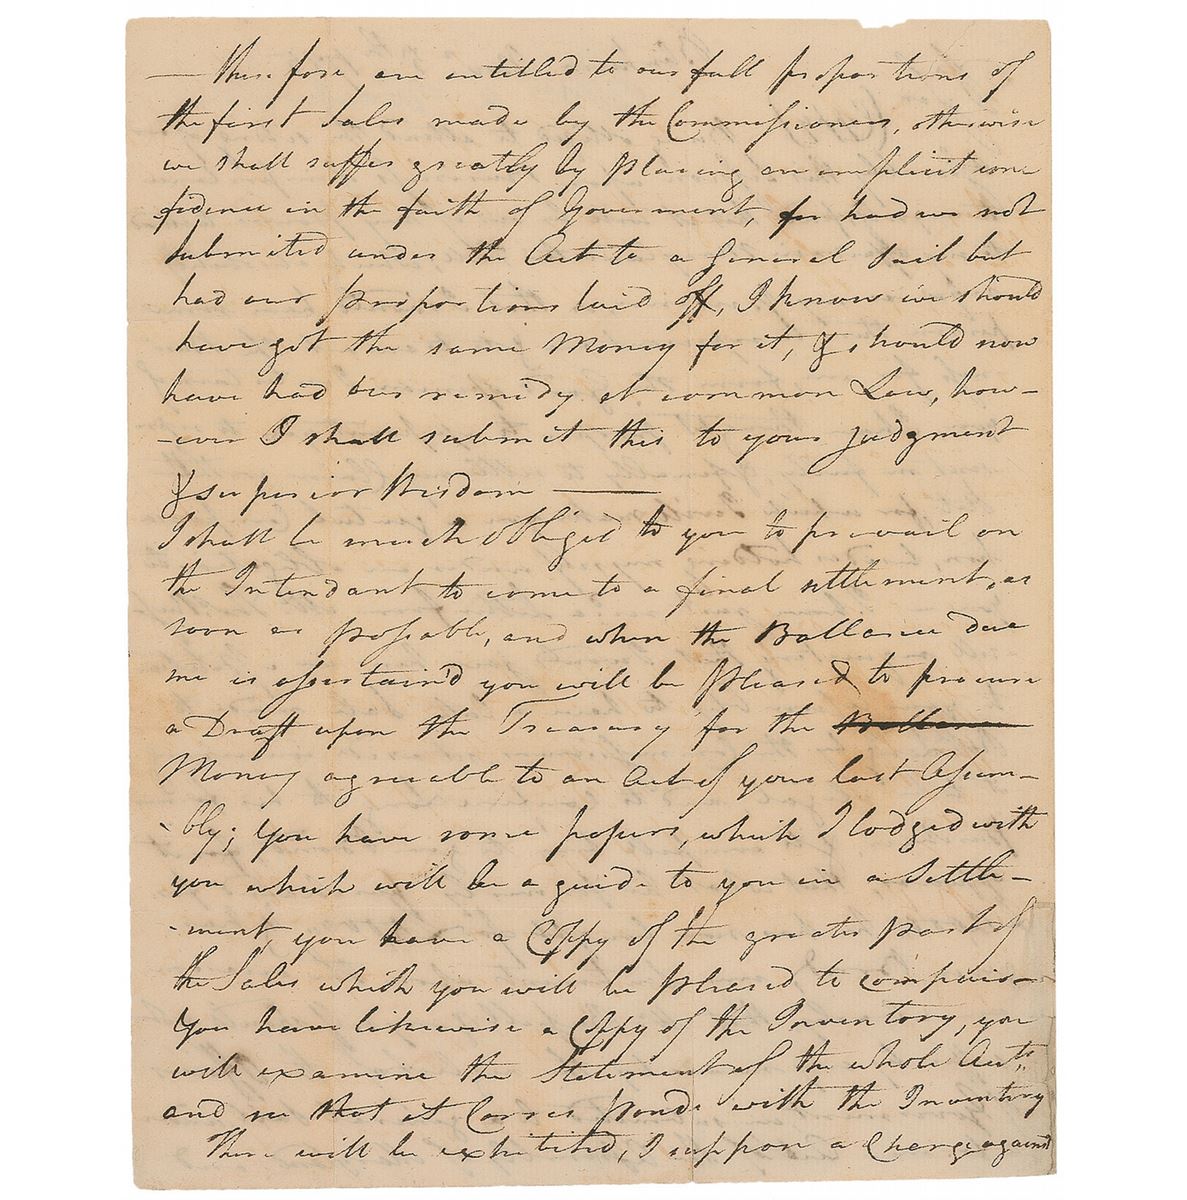 — therefore are entitled to our full proportions of
the first Sales made by the Commissioners, otherwise
we shall suffer greatly by placing an implicit con
fidence in the faith of Goverment, for had we not
submited under the Act to a General Sail but
had our proportions laid off, I know we should
have got the same Money for it, & should now
have had our remidy at common Law, how-
-ever I shall submit this to your judgment
& superior Wisdom ———
I shall be much obliged to you to prevail on
the Intendant to come to a final settlement, as
soon as possable, and when the Ballance due
me is assertain'd you will be pleased to procure
a Draft upon the Treasury for the Ballance
Money agreeable to an Act of your last Assem-
-bly; you have some papers, which I lodged with
you which will be a guide to you in a Settle-
-ment, you have a Coppy of the greater part of
the Sales which you will be pleased to compair—
You have likewise a Coppy of the Inventory, you
will examine the Statement of the whole Acts.
and see that it Corresponds with the Inventory
There will be exhibited, I suppose a Charge against